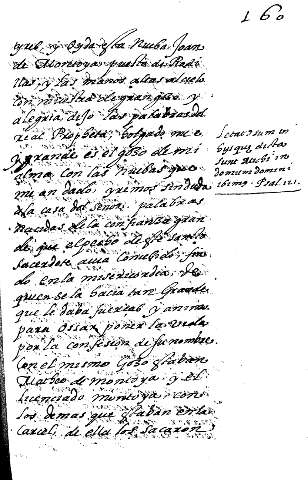 160
que, y oyda esta nueba Joan
de Montoya puesto de Rodi
llas, y las manos altas al cielo
con muestras de gran gozo y
alegria dijo las palabras d
el Propheta,
grande es el gozo de mi
alma con las nuebas que
me an dado, yremos sin duda
a la casa del señor, palabras
nacidas de la confiança gran
de que al pecho de este santo
sacerdote avia comunicado, fun
do en la misericordia, de
quien se la hacia tan Grande
que le daba fuerças, y animo
para ossar poner la vida
por la confesion de su nombre
Con el mismo Gozo estaban
Matheo de montoya, y el
licenciado montoya, con
los demas que estaban en la
Carcel, de ella los sacaron
Letatus sum in
his que dicta
sunt michi in
domum domini
ibimus. Psal. 121.